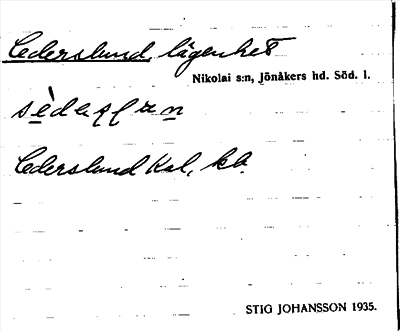 Cederslund, lägenhet
Nikolai s:n, Jönåkers hd. Söd. l.
Cederslund Kal, kb
STIG JOHANSSON 1935.